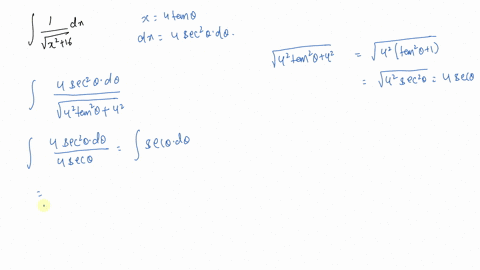 ∫ 1/√(x²+16) dx
x = 4tanθ
dx = 4 sec²θ·dθ.
√(4²tan²θ+4²) = √(4²(tan²θ+1))
= √(4²sec²θ) = 4secθ
∫ 4sec²θ·dθ/√(4²tan²θ+4²)
∫ 4sec²θ·dθ/4secθ = ∫ secθ·dθ
=